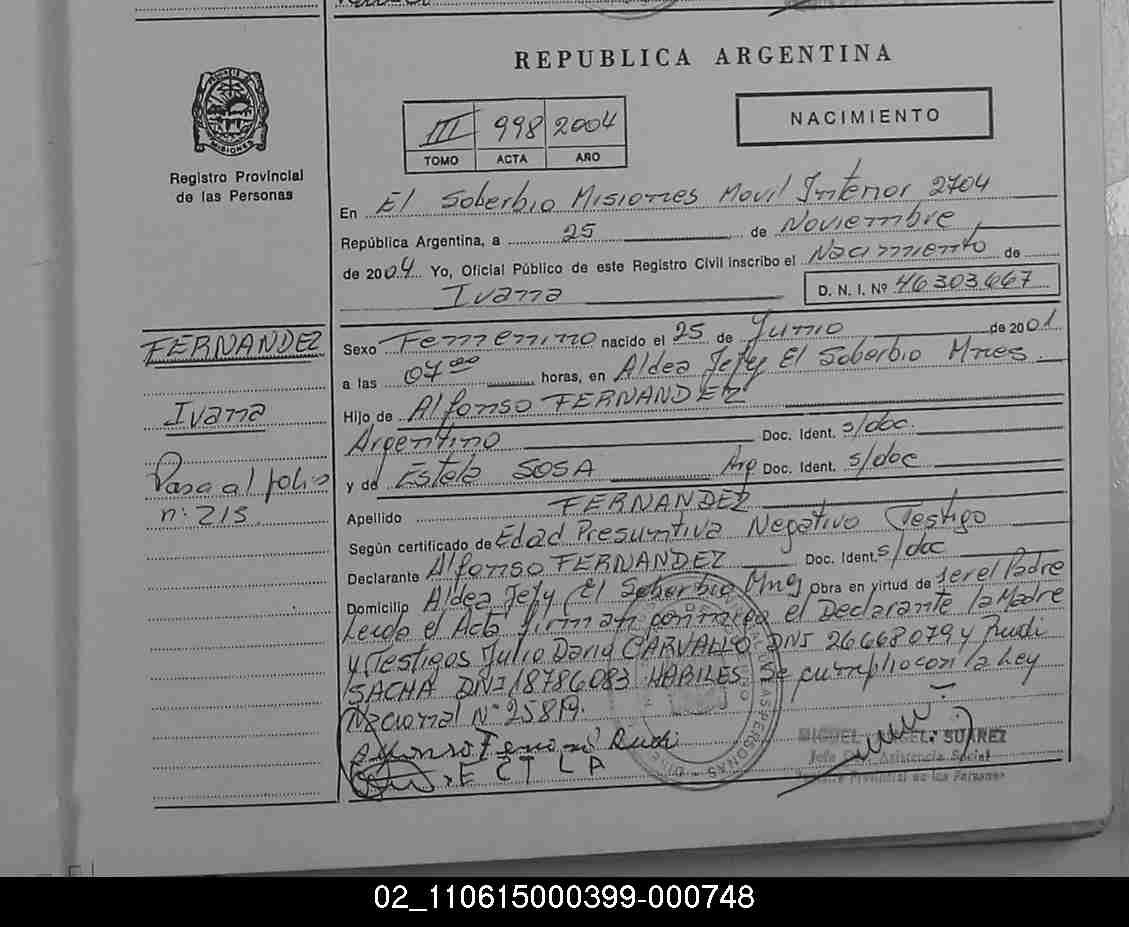 REPUBLICA ARGENTINA
PROVINCIA DE
MISIONES
Registro Provincial
de las Personas
III 998 2004
TOMO ACTA AÑO
NACIMIENTO
En El Soberbio Misiones Movil Interior 2704
República Argentina, a 25 de Noviembre
de 2004 Yo, Oficial Público de este Registro Civil inscribo el Nacimiento de
Ivana D. N. I. Nº 46303667
FERNANDEZ
Ivana
Pasa al folio
n: 215
Sexo Femenino nacido el 25 de Junio de 2001
a las 07 00 horas, en Aldea Jejy El Soberbio Mnes.
Hijo de Alfonso FERNANDEZ
Argentino Doc. Ident. s/doc.
y de Estela SOSA Arg Doc. Ident. s/doc
Apellido FERNANDEZ
Según certificado de Edad Presuntiva Negativo Testigo
Declarante Alfonso FERNANDEZ Doc. Ident. s/doc
Domicilio Aldea Jejy El Soberbio Mnes Obra en virtud de ser el Padre
Leida el Acta firman conmigo el Declarante la Madre
y Testigos Julio Dario CARVALLO DNI 26668079 y Rudi
SACHA DNI 18786083 HABILES Se cumplio con la Ley
Nacional Nº 25819.
Rudi
MIGUEL ANGEL SUAREZ
Asistencia Social
Provincial de las Personas
02_110615000399-000748